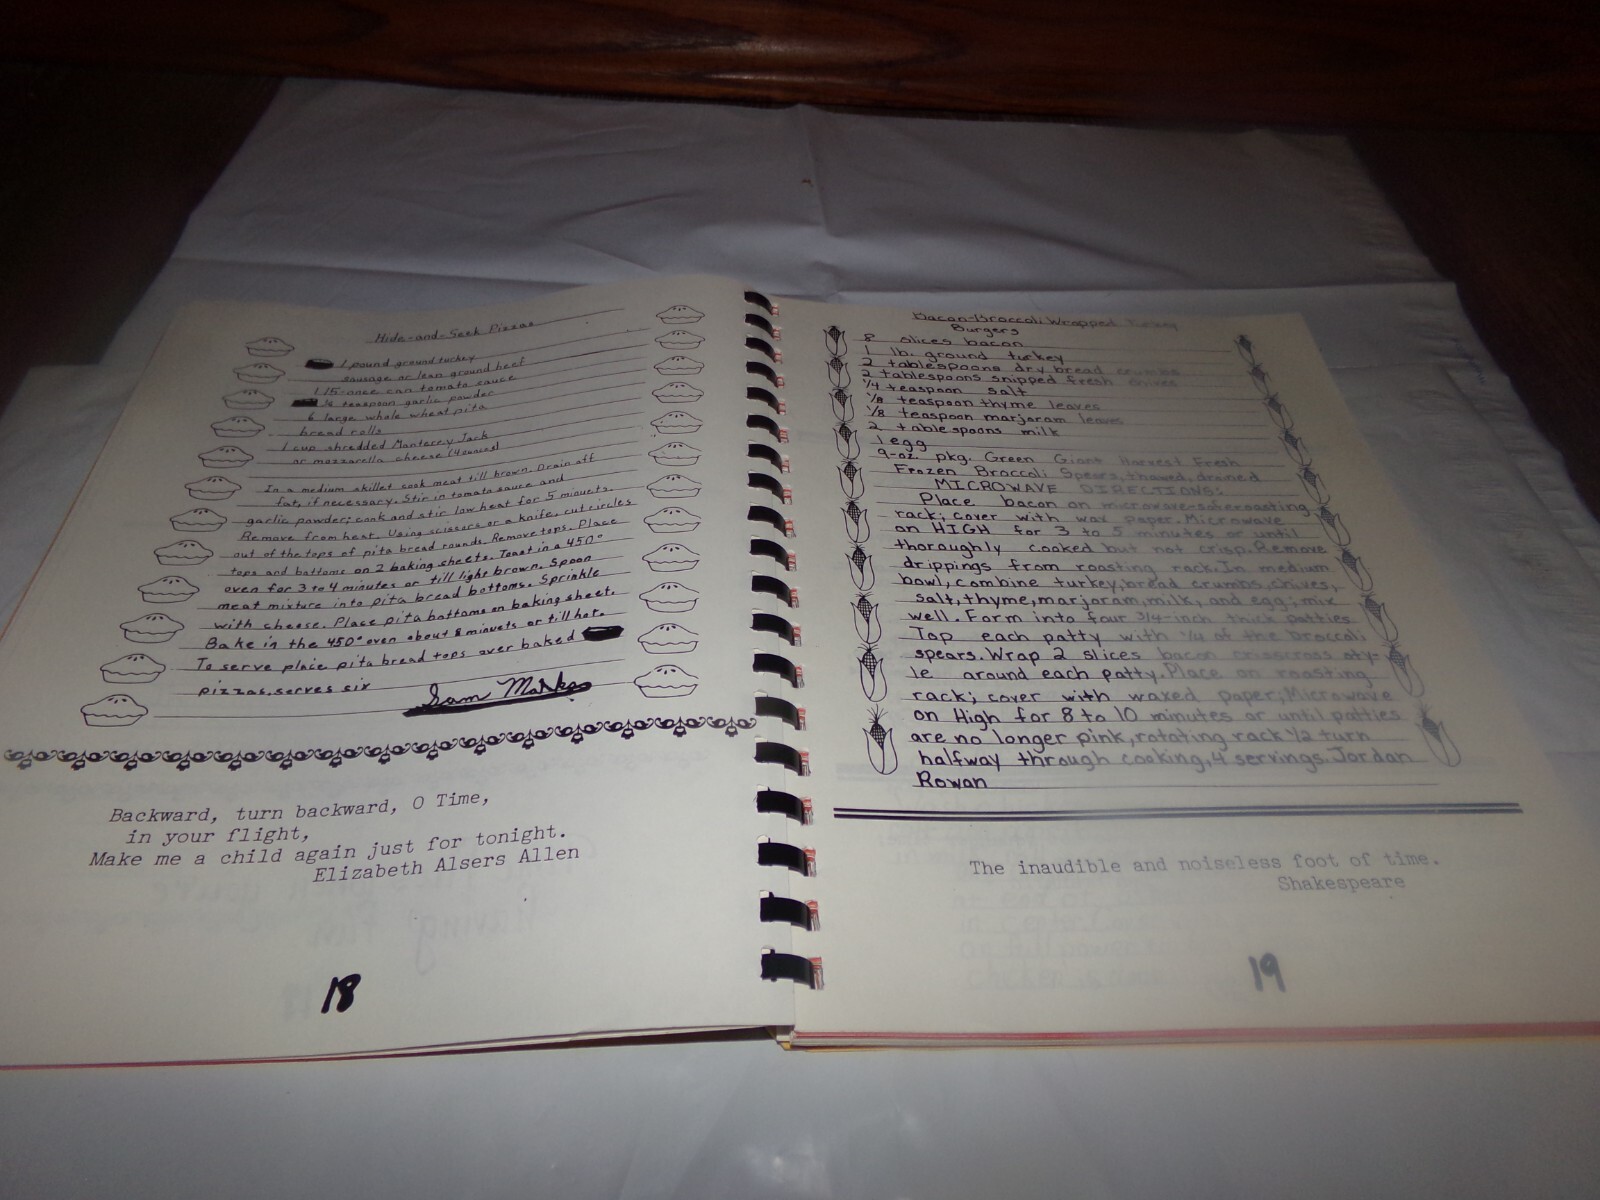 Hide-and-Seek Pizzas
1 pound ground turkey
sausage or lean ground beef
1 15-once can tomato sauce
¼ teaspoon garlic powder
6 large whole wheat pita
bread rolls
1 cup shredded Monterey Jack
or mozzarella cheese (4 ounces)
In a medium skillet cook meat till brown. Drain off
fat, if necessary. Stir in tomato sauce and
garlic powder; cook and stir low heat for 5 minuets.
Remove from heat. Using scissors or a knife, cut circles
out of the tops of pita bread rounds. Remove tops. Place
tops and bottoms on 2 baking sheets. Toast in a 450°
oven for 3 to 4 minutes or till light brown. Spoon
meat mixture into pita bread bottoms. Sprinkle
with cheese. Place pita bottoms on baking sheet.
Bake in the 450° oven about 8 minuets or till hot.
To serve place pita bread tops over baked
pizzas. serves six
Sam
Backward, turn backward, O Time,
in your flight,
Make me a child again just for tonight.
Elizabeth Alsers Allen
18
Bacon-Broccoli Wrapped Turkey
Burgers
8 slices bacon
1 lb. ground turkey
2 tablespoons dry bread crumbs
2 tablespoons snipped fresh chives
1/4 teaspoon salt
1/8 teaspoon thyme leaves
1/8 teaspoon marjoram leaves
2 tablespoons milk
1 egg
9-oz. pkg. Green Giant Harvest Fresh
Frozen Broccoli Spears, thawed, drained
MICROWAVE DIRECTIONS:
Place bacon on microwave-safe roasting
rack; cover with wax paper. Microwave
on HIGH for 3 to 5 minutes or until
thoroughly cooked but not crisp. Remove
drippings from roasting rack. In medium
bowl, combine turkey, bread crumbs, chives,
salt, thyme, marjoram, milk, and egg; mix
well. Form into four 3/4-inch thick patties
Top each patty with 1/4 of the broccoli
spears. Wrap 2 slices bacon crisscross sty-
le around each patty. Place on roasting
rack; cover with waxed paper; Microwave
on High for 8 to 10 minutes or until patties
are no longer pink, rotating rack 1/2 turn
halfway through cooking, 4 servings. Jordan
Rowan
The inaudible and noiseless foot of time.
Shakespeare
19